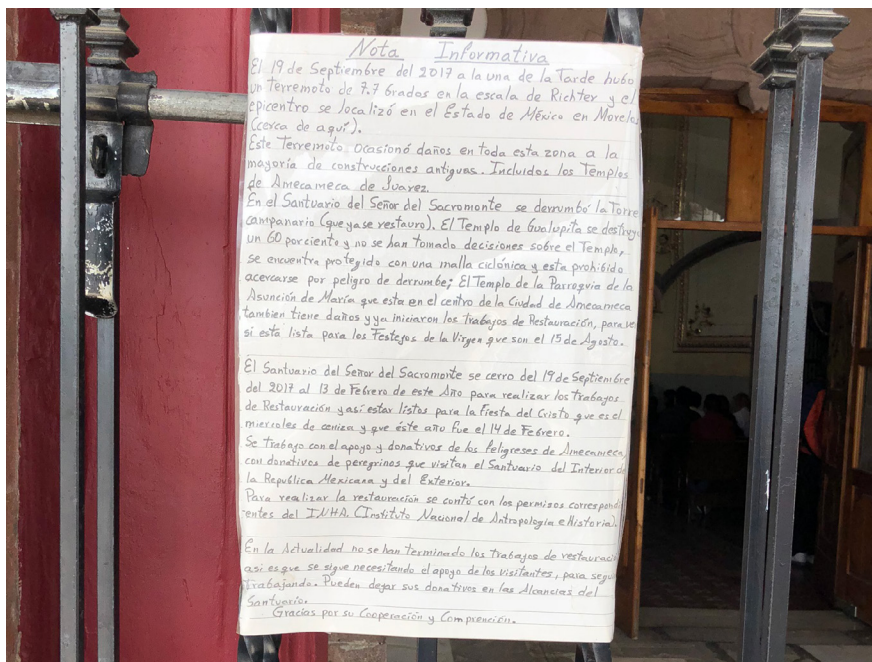 Nota Informativa
El 19 de Septiembre del 2017 a la una de la Tarde hubo
un Terremoto de 7.7 Grados en la escala de Richter y el
epicentro se localizó en el Estado de México en Morelos
(cerca de aquí).
Este Terremoto ocasionó daños en toda esta zona a la
mayoría de construcciones antiguas. Incluidos los Templos
de Amecameca de Juarez.
En el Santuario del Señor del Sacromonte se derrumbó la Torre
campanario (que ya se restauro). El Templo de Gualupita se destruyo
un 60 porciento y no se han tomado decisiones sobre el Templo,
se encuentra protegido con una malla ciclónica y esta prohibido
acercarse por peligro de derrumbe; El Templo de la Parroquia de la
Asunción de María que esta en el centro de la Ciudad de Amecameca
tambien tiene daños y ya iniciaron los trabajos de Restauración, para ver
si esta lista para los Festejos de la Virgen que son el 15 de Agosto.
El Santuario del Señor del Sacromonte se cerro del 19 de Septiembre
del 2017 al 13 de Febrero de este Año para realizar los trabajos
de Restauración y así estar listos para la Fiesta del Cristo que es el
miercoles de ceniza y que éste año fue el 14 de Febrero.
Se trabajo con el apoyo y donativos de los feligreses de Amecameca,
con donativos de peregrinos que visitan el Santuario del Interior de
la Republica Mexicana y del Exterior.
Para realizar la restauración se contó con los permisos correspondi
entes del INHA. (Instituto Nacional de Antropologia e Historia).
En la Actualidad no se han terminado los trabajos de restauraci
asi es que se sigue necesitando el apoyo de los visitantes, para segu
trabajando. Pueden dejar sus donativos en las Alcancias del
Santuario.
Gracias por su Cooperación y Comprención.